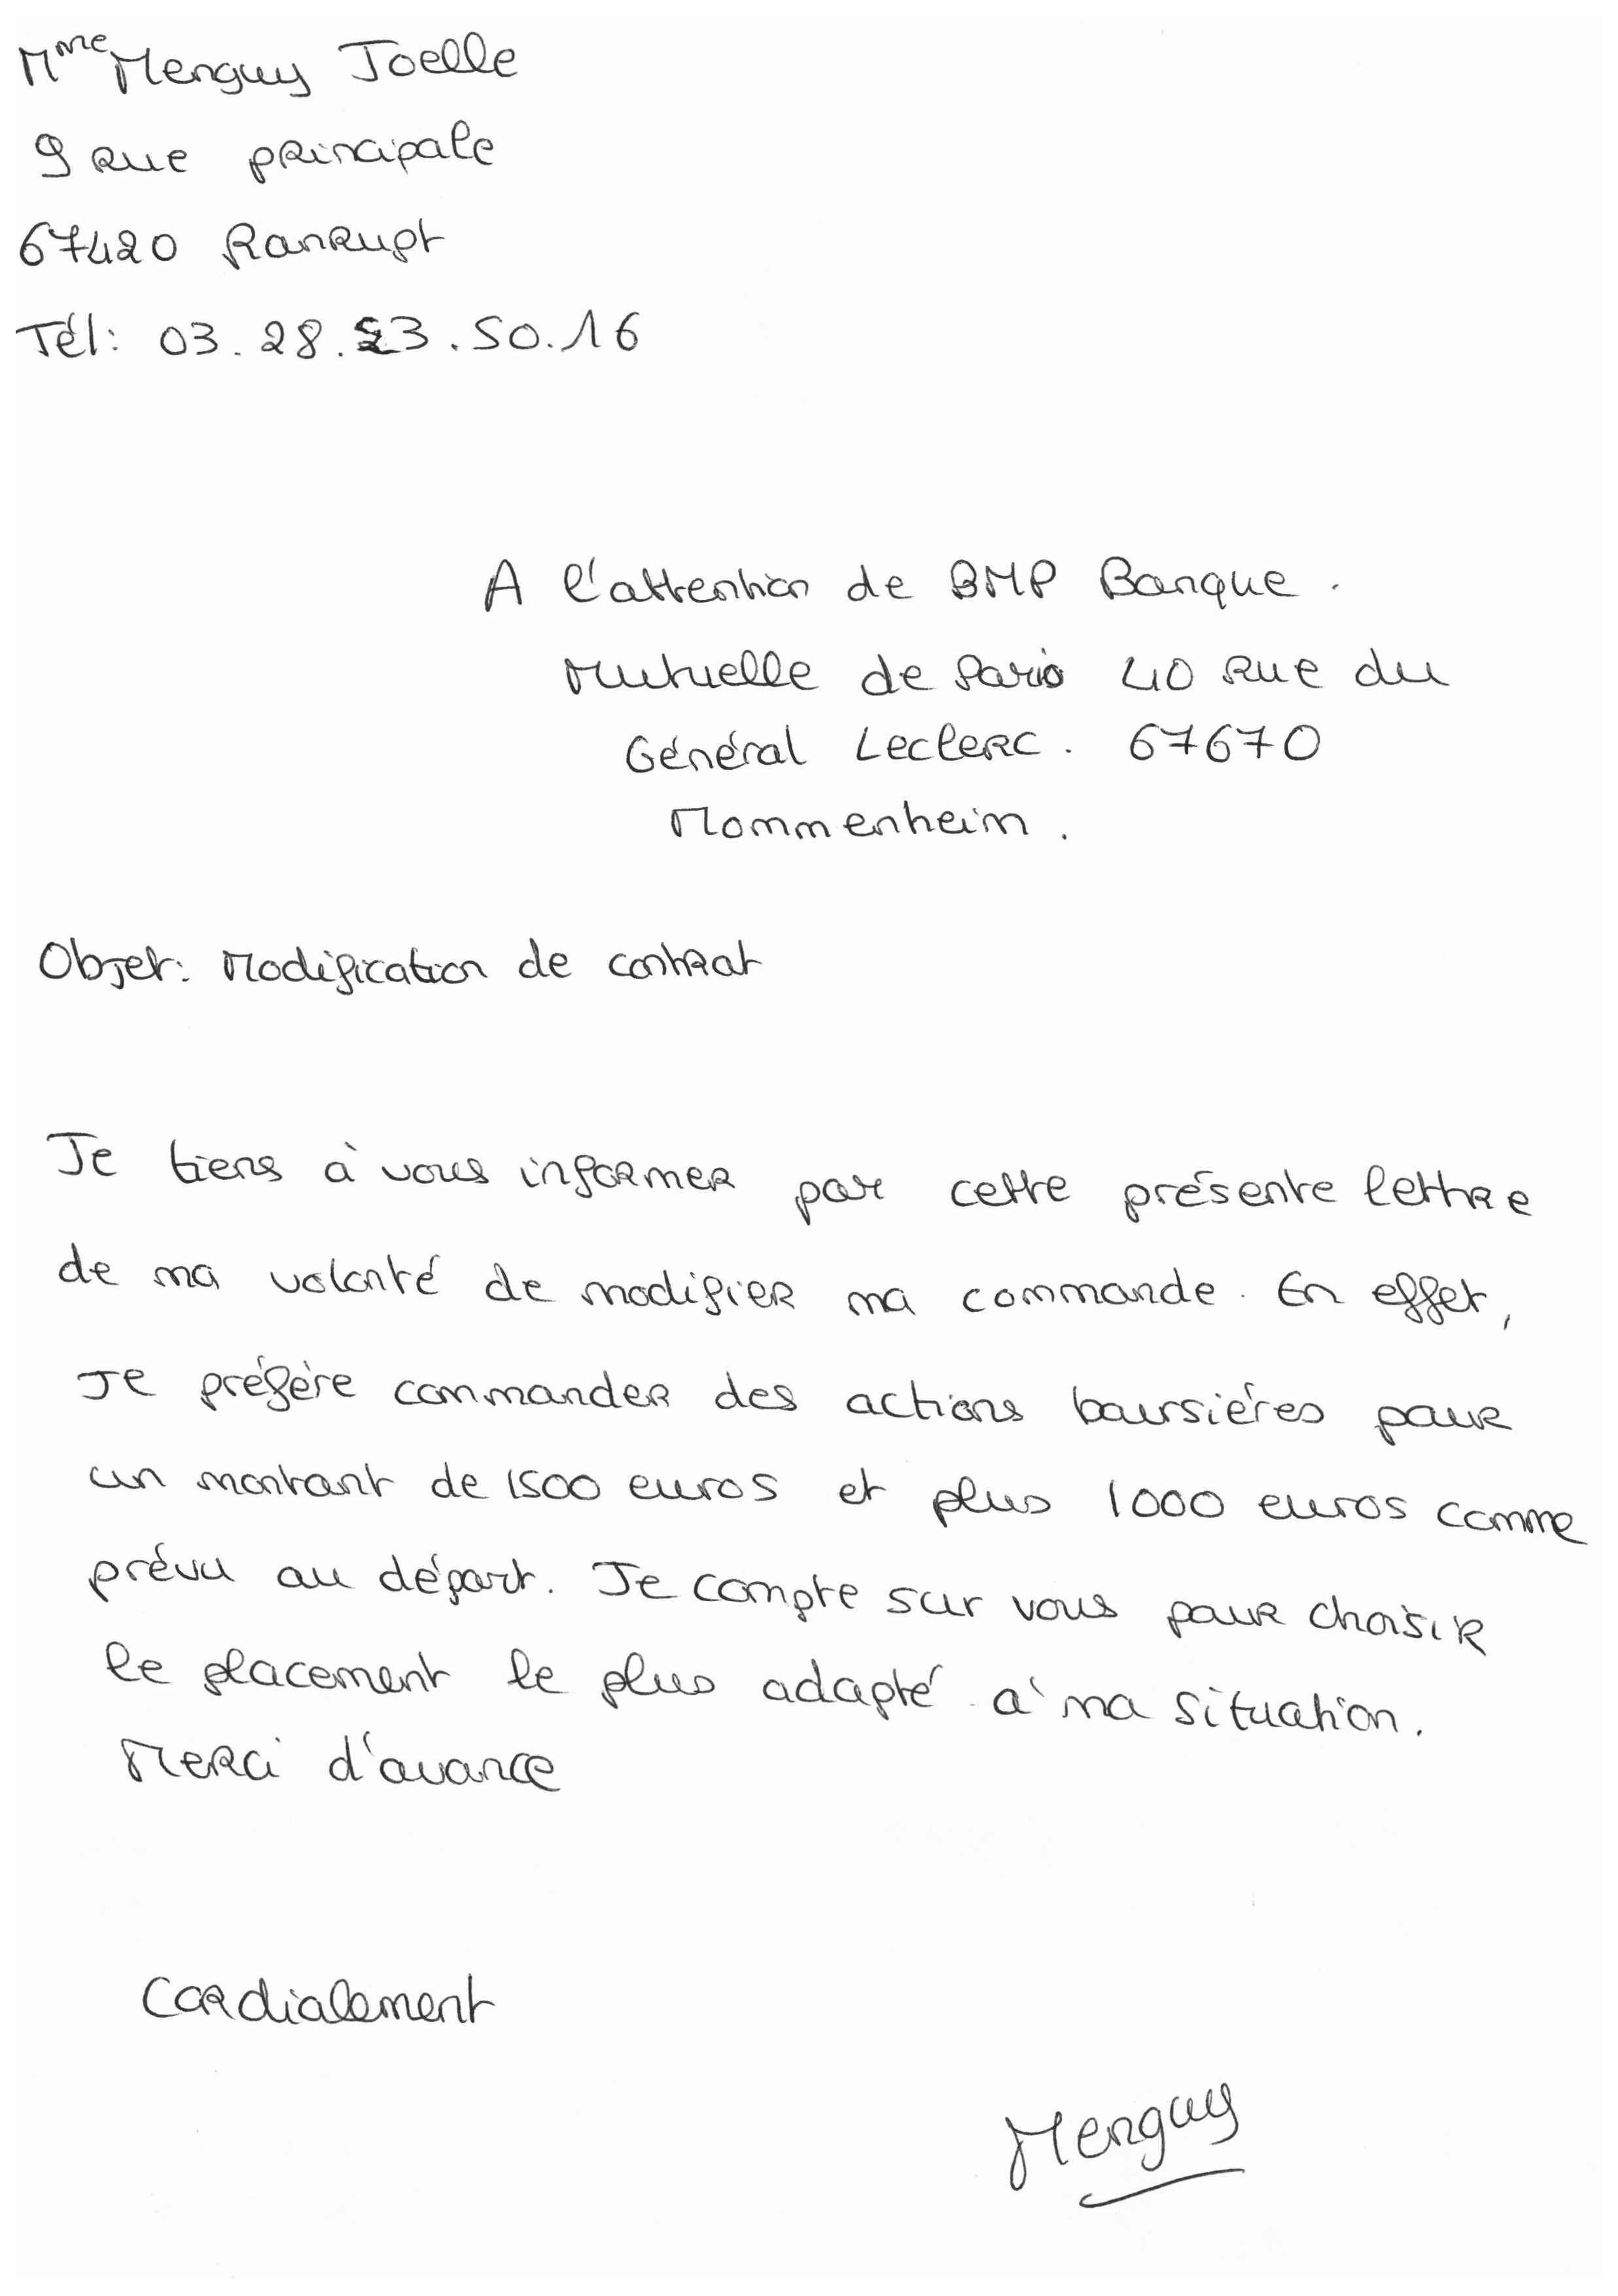 Mme Menguy Joelle
9 rue principale
67420 Ranrupt
Tél: 03.28.23.50.16
A l'attention de BMP Banque.
Mutuelle de Paris 40 rue du
Général Leclerc. 67670
Mommenheim.
Objet: Modification de contrat
Je tiens à vous informer par cette présente lettre
de ma volonté de modifier ma commande. En effet,
je préfère commander des actions boursières pour
un montant de 1500 euros et plus 1000 euros comme
prévu au départ. Je compte sur vous pour choisir
le placement le plus adapté à ma situation.
Merci d'avance
Cordialement
Menguy